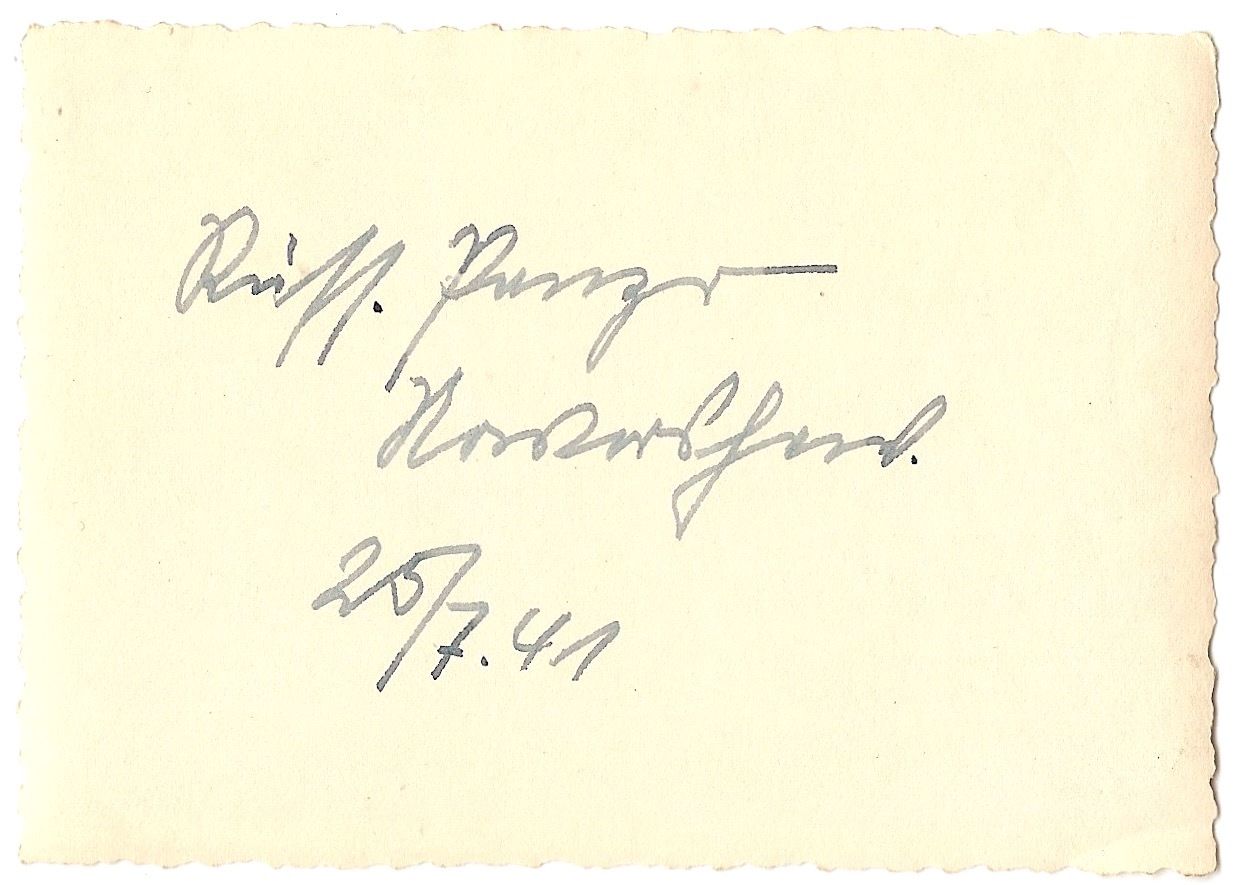 Russ. Panzer —
25/7.41